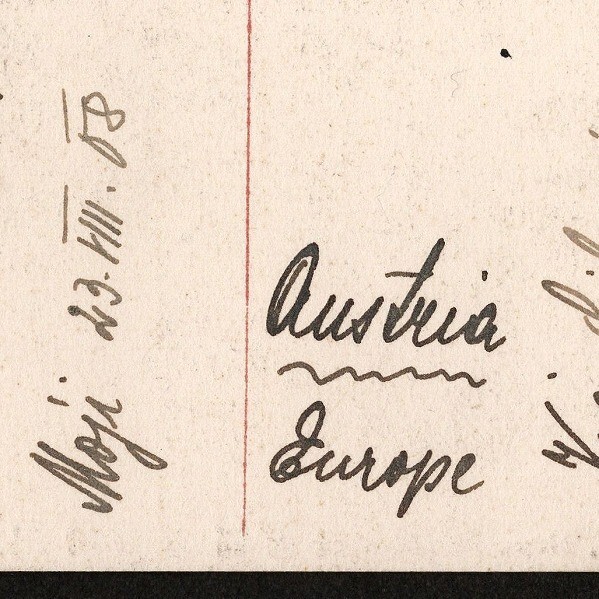 Moji 23. VIII. 08
Austria
Europe